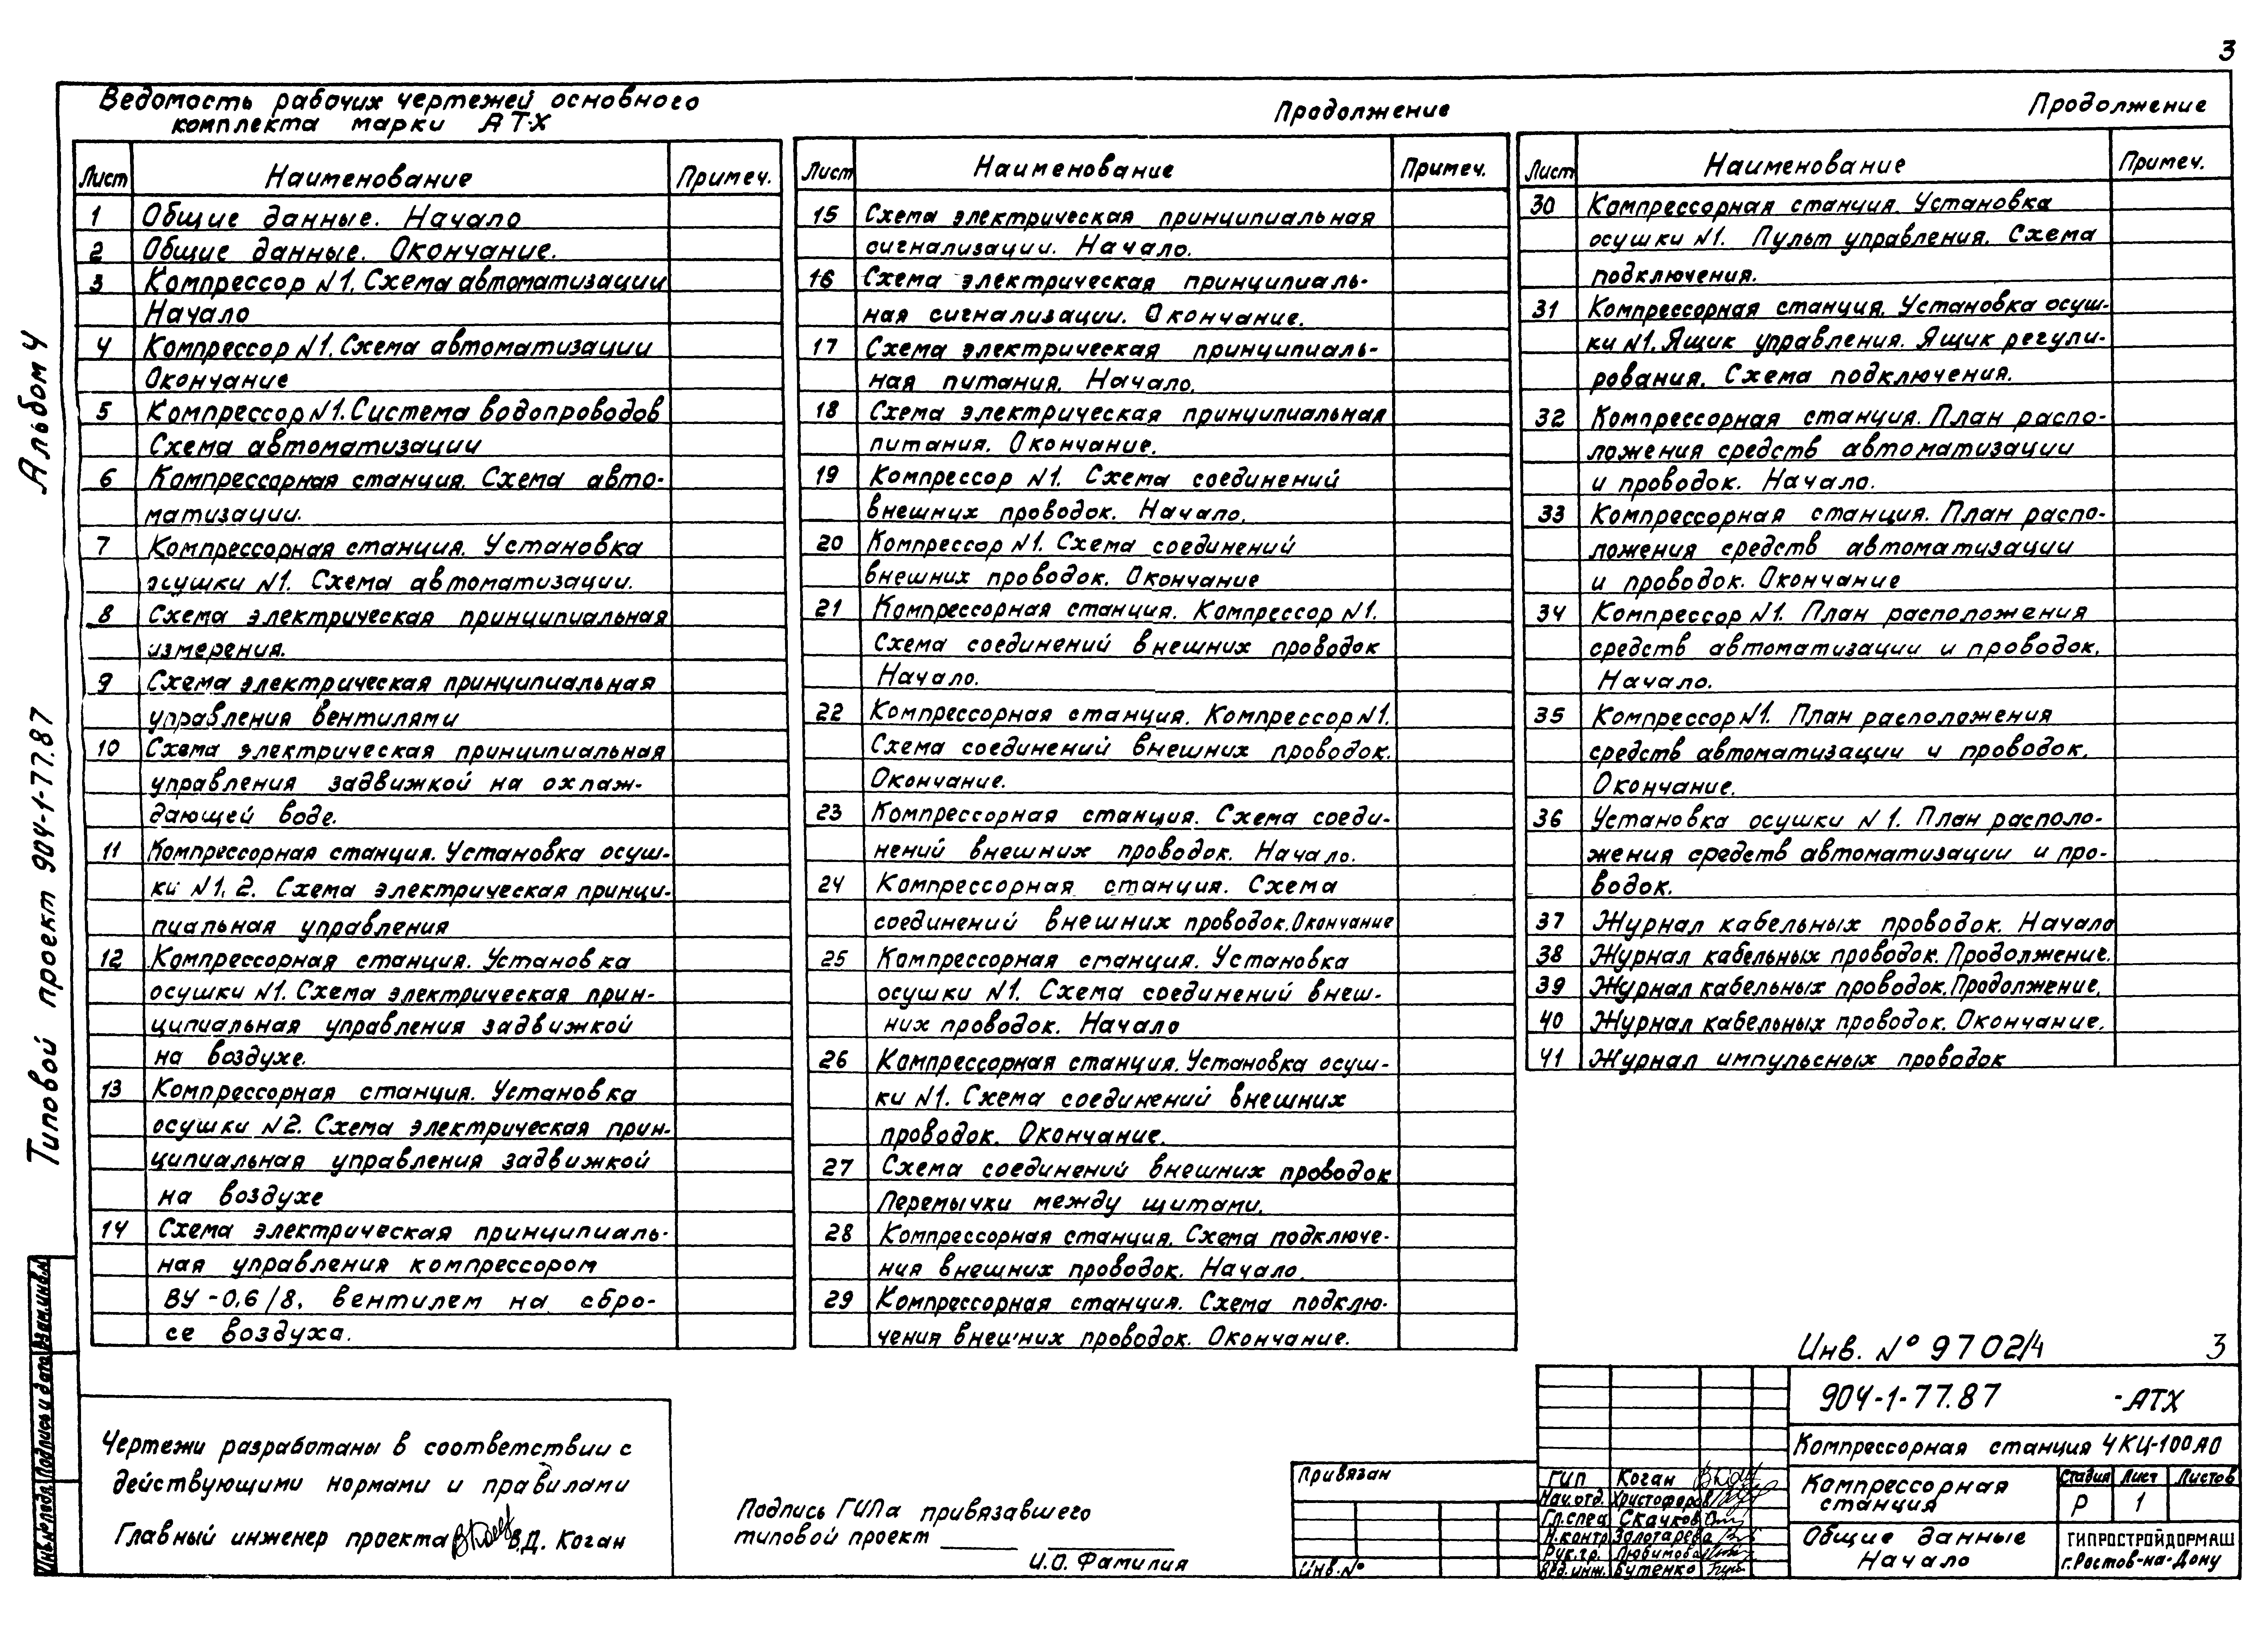 3
Ведомость рабочих чертежей основного
комплекта марки АТХ
Лист Наименование Примеч.
1 Общие данные. Начало
2 Общие данные. Окончание.
3 Компрессор №1. Схема автоматизации
Начало
4 Компрессор №1. Схема автоматизации
Окончание
5 Компрессор №1. Система водопроводов
Схема автоматизации
6 Компрессорная станция. Схема авто-
матизации.
7 Компрессорная станция. Установка
осушки №1. Схема автоматизации.
8 Схема электрическая принципиальная
измерения.
9 Схема электрическая принципиальная
управления вентилями
10 Схема электрическая принципиальная
управления задвижкой на охлаж-
дающей воде.
11 Компрессорная станция. Установка осуш-
ки №1.2. Схема электрическая принци-
пиальная управления
12 Компрессорная станция. Установка
осушки №1. Схема электрическая прин-
ципиальная управления задвижкой
на воздухе.
13 Компрессорная станция. Установка
осушки №2. Схема электрическая прин-
ципиальная управления задвижкой
на воздухе
14 Схема электрическая принципиаль-
ная управления компрессором
ВУ-0,6/8, вентилем на сбро-
се воздуха.
Продолжение
Лист Наименование Примеч.
15 Схема электрическая принципиальная
сигнализации. Начало.
16 Схема электрическая принципиаль-
ная сигнализации. Окончание.
17 Схема электрическая принципиаль-
ная питания. Начало.
18 Схема электрическая принципиальная
питания. Окончание.
19 Компрессор №1. Схема соединений
внешних проводок. Начало.
20 Компрессор №1. Схема соединений
внешних проводок. Окончание
21 Компрессорная станция. Компрессор №1.
Схема соединений внешних проводок
Начало.
22 Компрессорная станция. Компрессор №1.
Схема соединений внешних проводок.
Окончание.
23 Компрессорная станция. Схема соеди-
нений внешних проводок. Начало.
24 Компрессорная станция. Схема
соединений внешних проводок. Окончание
25 Компрессорная станция. Установка
осушки №1. Схема соединений внеш-
них проводок. Начало
26 Компрессорная станция. Установка осуш-
ки №1. Схема соединений внешних
проводок. Окончание.
27 Схема соединений внешних проводок
Перемычки между щитами.
28 Компрессорная станция. Схема подключе-
ния внешних проводок. Начало.
29 Компрессорная станция. Схема подклю-
чения внешних проводок. Окончание.
Продолжение
Лист Наименование Примеч.
30 Компрессорная станция. Установка
осушки №1. Пульт управления. Схема
подключения.
31 Компрессорная станция. Установка осуш-
ки №1. Ящик управления. Ящик регули-
рования. Схема подключения.
32 Компрессорная станция. План распо-
ложения средств автоматизации
и проводок. Начало.
33 Компрессорная станция. План распо-
ложения средств автоматизации
и проводок. Окончание
34 Компрессор №1. План расположения
средств автоматизации и проводок.
Начало.
35 Компрессор №1. План расположения
средств автоматизации и проводок.
Окончание.
36 Установка осушки №1. План располо-
жения средств автоматизации и про-
водок.
37 Журнал кабельных проводок. Начало
38 Журнал кабельных проводок. Продолжение.
39 Журнал кабельных проводок. Продолжение.
40 Журнал кабельных проводок. Окончание.
41 Журнал импульсных проводок
Альбом 4
Типовой проект 904-1-77.87
Взам.инв.№
Подпись и дата
Инв.№подл.
Чертежи разработаны в соответствии с
действующими нормами и правилами
Главный инженер проекта В.Д. Коган
Подпись ГИПа привязавшего
типовой проект
И.О. Фамилия
Привязан
Инв.№
Инв. № 9702/4 3
904-1-77.87 -АТХ
Компрессорная станция 4КЦ-100А0
ГИП Коган
Нач.отд. Христофоров
Гл.спец Скачков
Н.контр. Золотарева
Рук.гр. Любимова
Вед.инж. Бутенко
Компрессорная
станция
Стадия Лист Листов
Р 1
Общие данные
Начало
ГИПРОСТРОЙДОРМАШ
г.Ростов-на-Дону